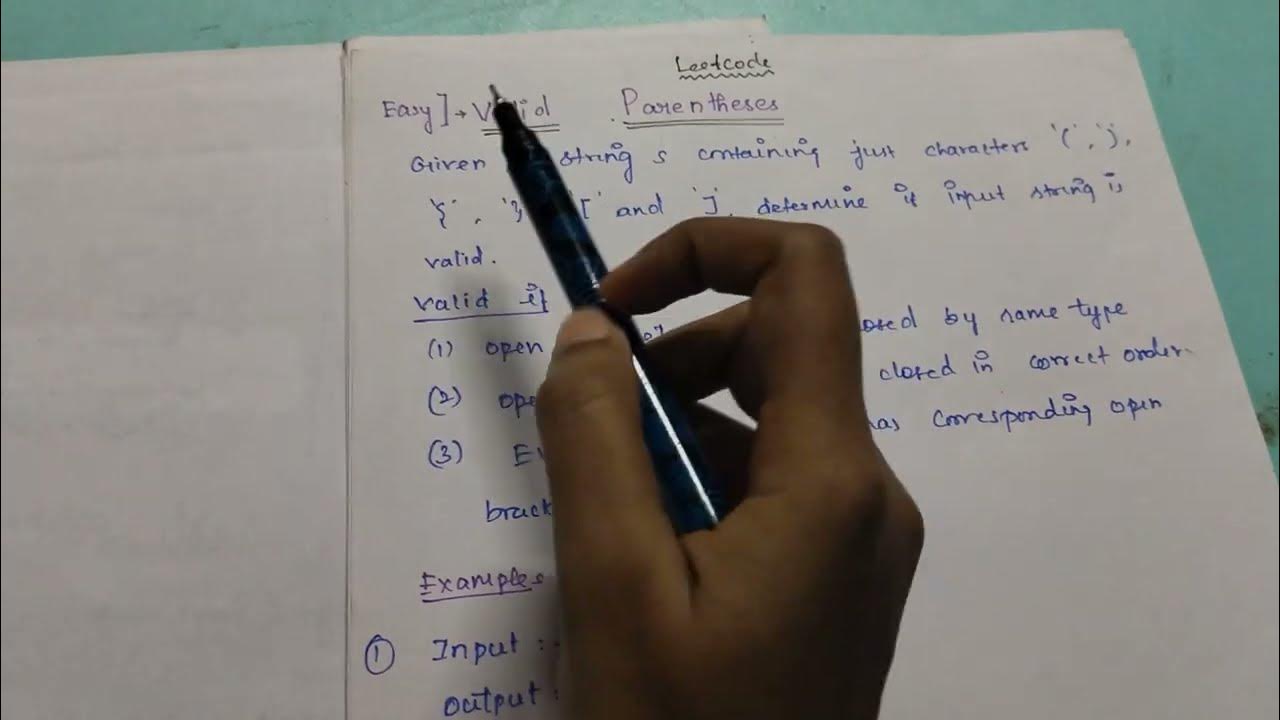 Leetcode
Easy] → Valid Parentheses
Given string s containing just characters '(', ')',
'{', '}' '[' and ']', determine if input string is
valid.
valid if
(1) open by same type
(2) closed in correct order.
(3) corresponding open
Examples
① Input :
Output :